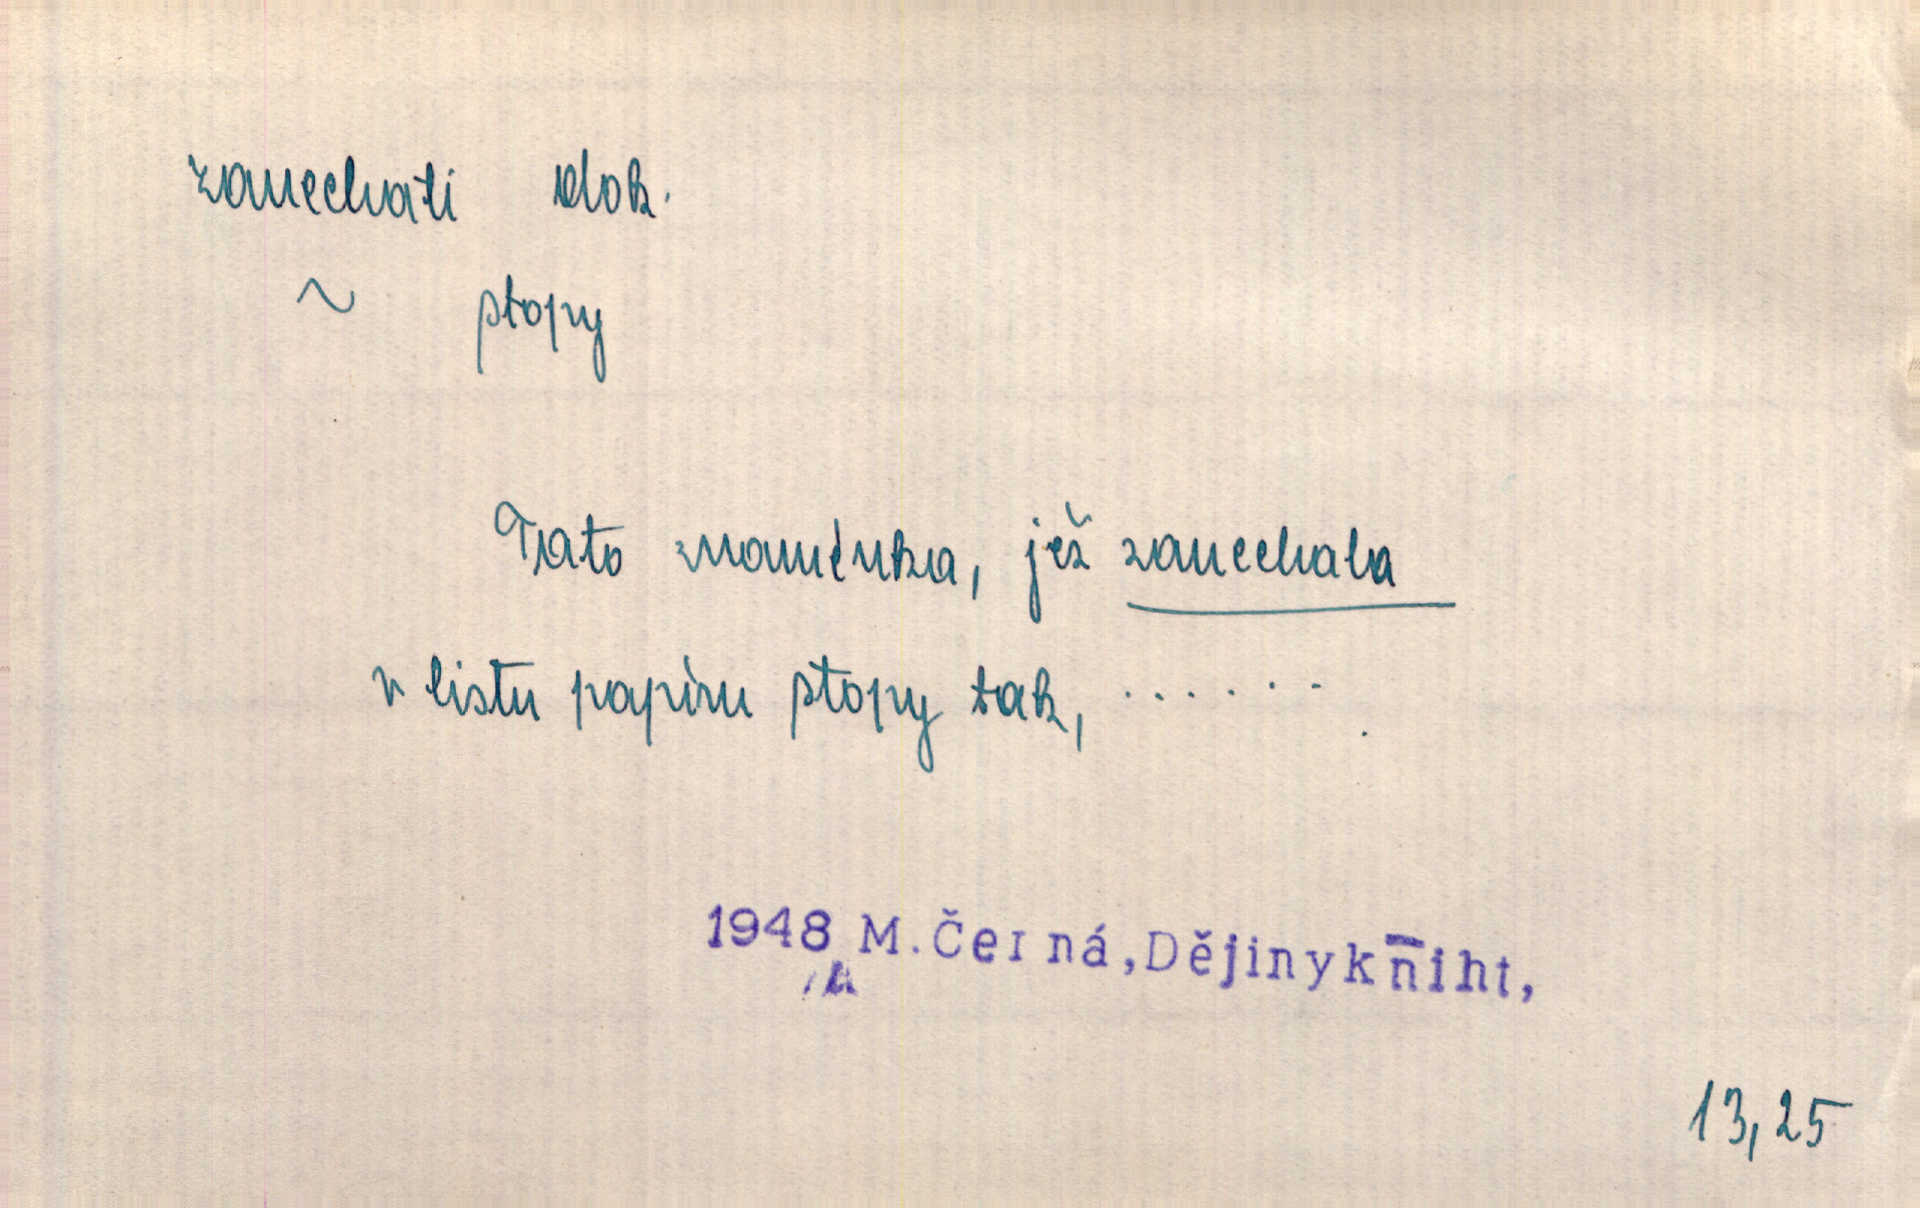 zanechati dok.
~ stopy
Tato znaménka, jež zanechala
v listu papíru stopy tak, . . . . . .
1948 M. Černá, Dějiny kniht,
13,25